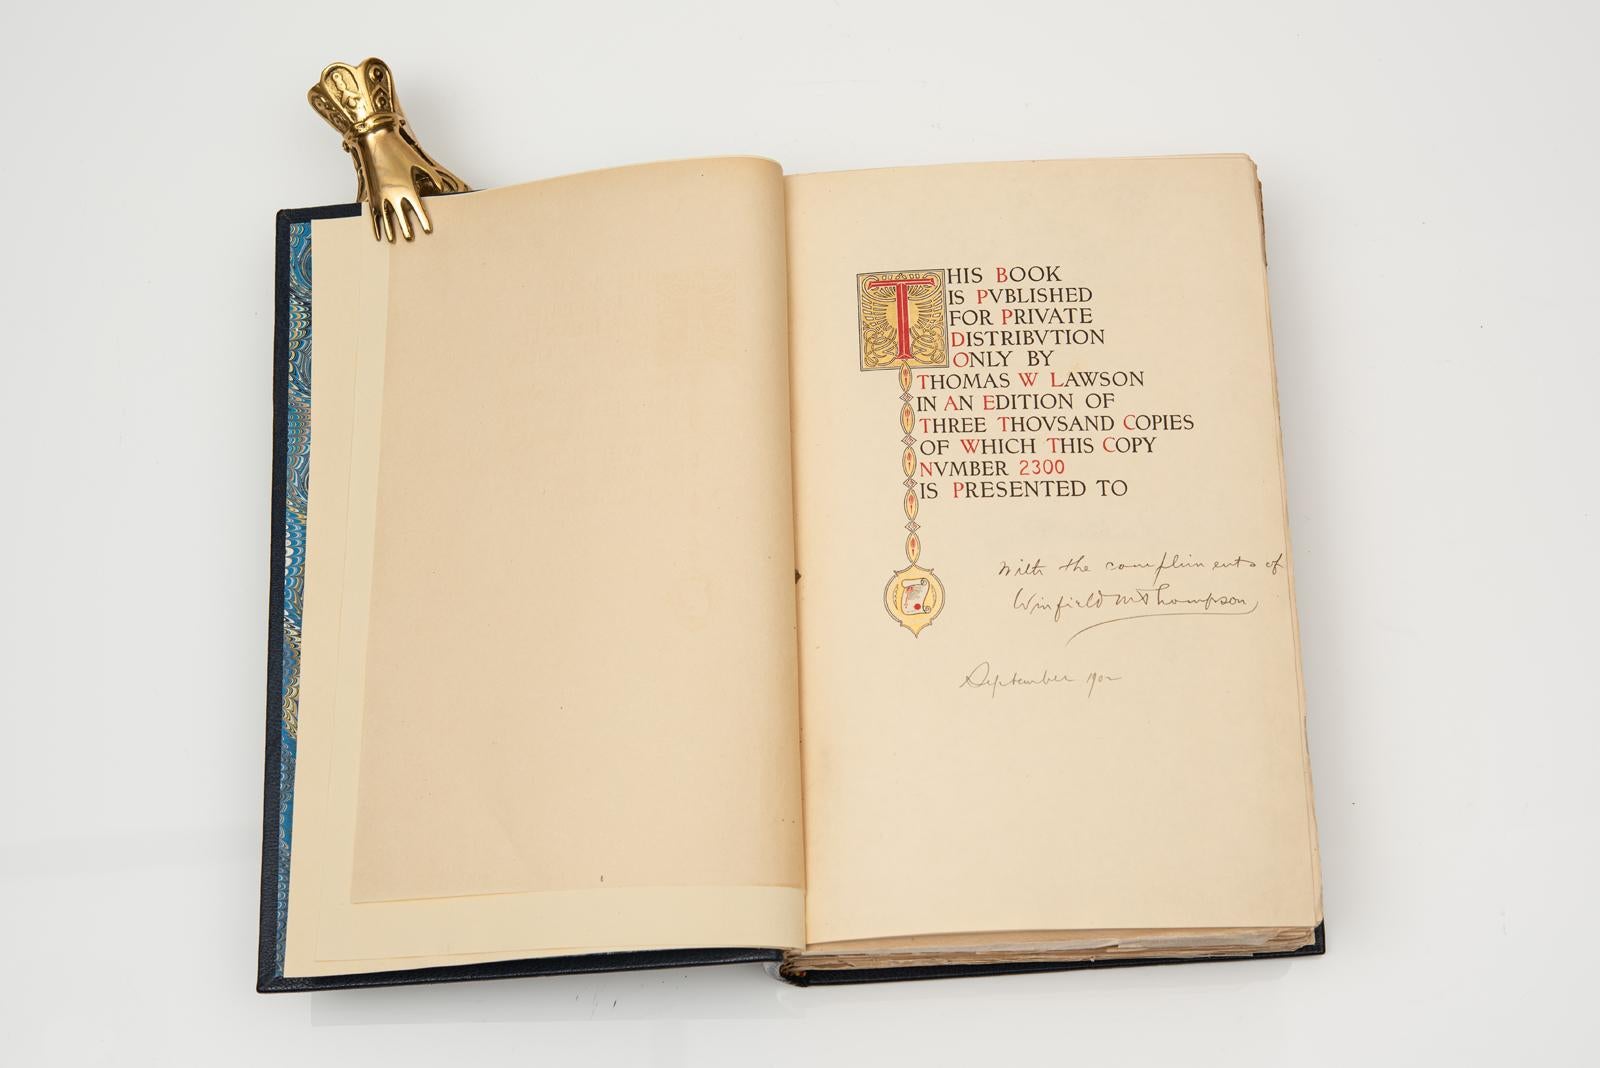 THIS BOOK
IS PVBLISHED
FOR PRIVATE
DISTRIBVTION
ONLY BY
THOMAS W LAWSON
IN AN EDITION OF
THREE THOVSAND COPIES
OF WHICH THIS COPY
NVMBER 2300
IS PRESENTED TO
With the compliments of
Winfield M Thompson
September 1902